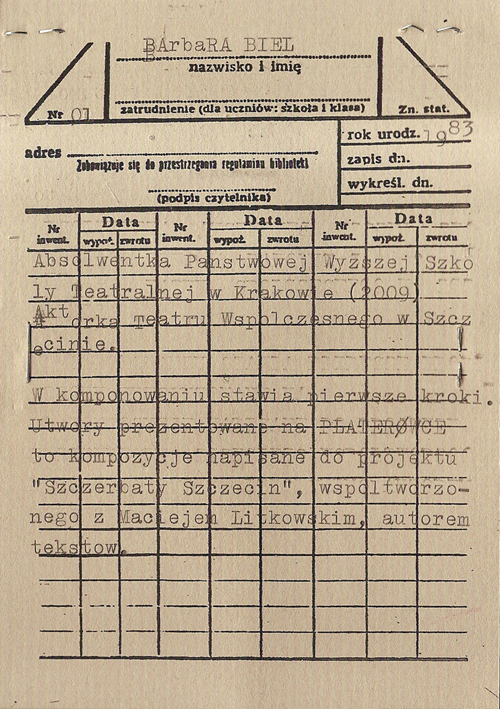 BArbaRA BIEL
nazwisko i imię
zatrudnienie (dla uczniów: szkoła i klasa)
Nr 01
Zn. stat.
adres
Zobowiązuje się do przestrzegania regulaminu biblioteki
(podpis czytelnika)
rok urodz. 1983
zapis dn.
wykreśl. dn.
Nr inwent. Data Nr inwent. Data Nr inwent. Data
wypoż. zwrotu wypoż. zwrotu wypoż. zwrotu
Absolwentka Panstwowej Wyższej Szko
ly Teatralnej w Krakowie (2009)
Akt orka Teatru Wspolczesnego w Szcz
ecinie.
W komponowaniu stawia pierwsze kroki.
Utwory prezentowane na PLATERØWCE
to kompozycje napisane do projektu
"Szczerbaty Szczecin", wspoltworzo-
nego z Maciejem Litkowskim, autorem
tekstow.